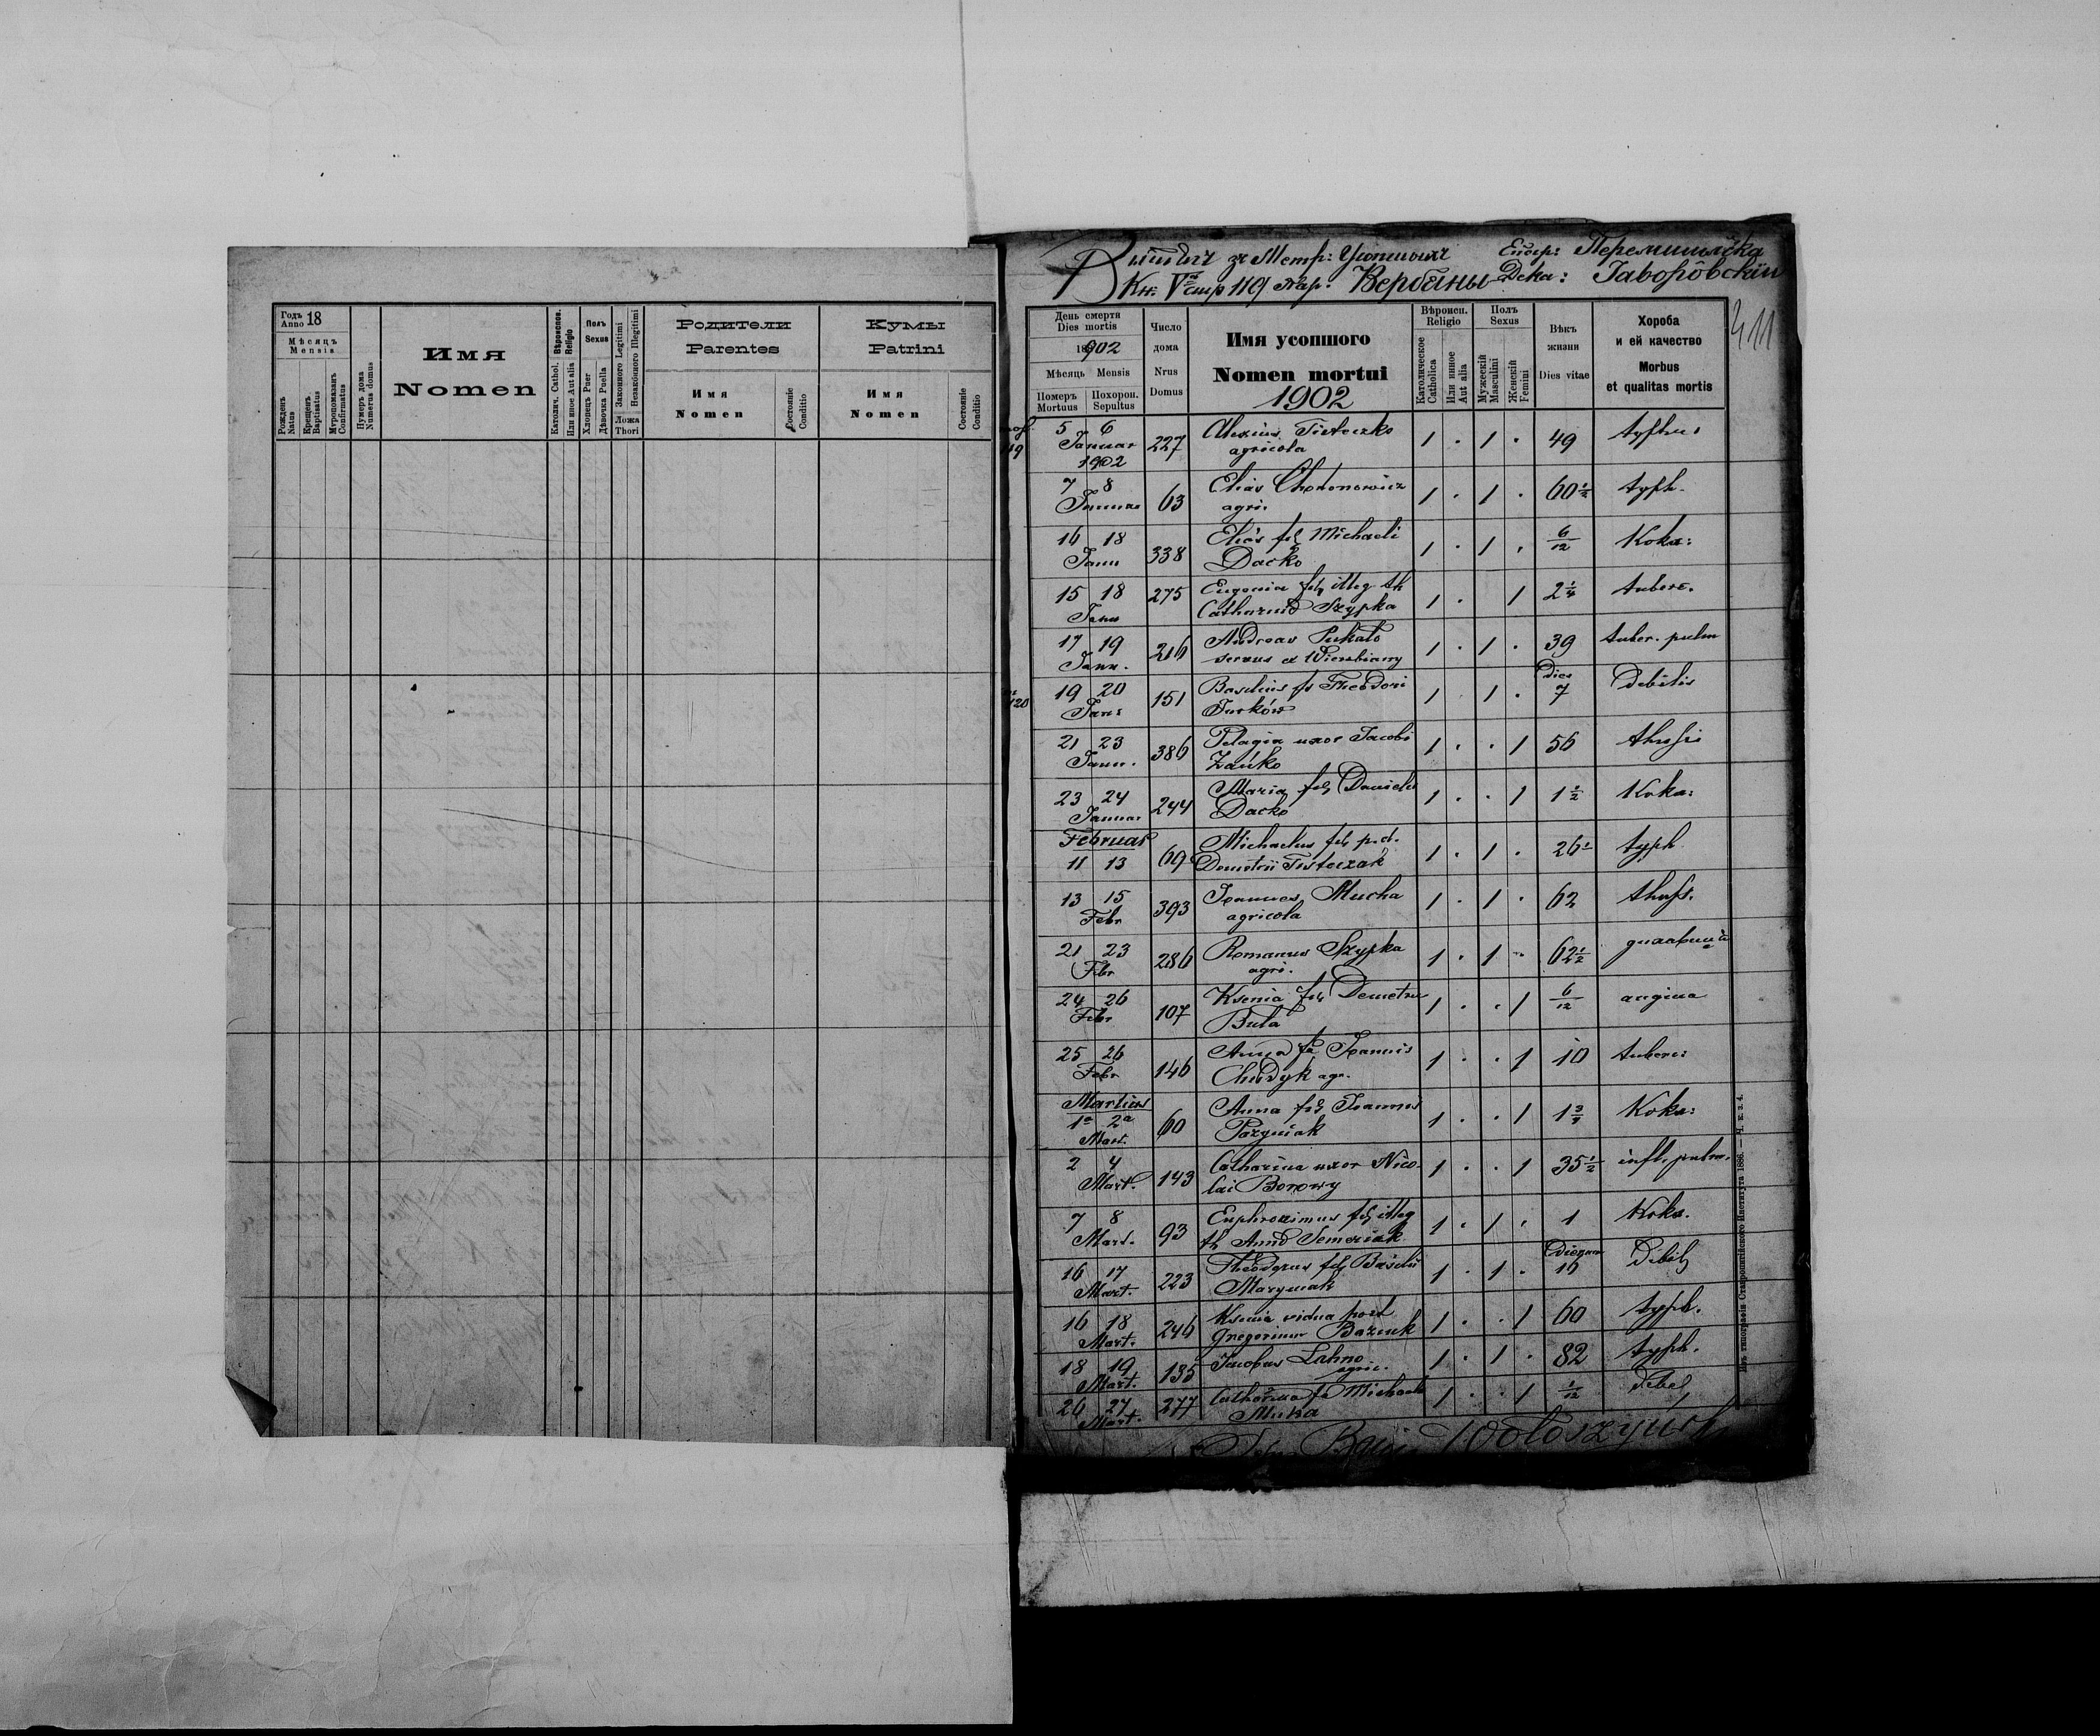 Годъ
Anno 18
Мѣсяць
Mensis
Рожденъ
Natus
Крещенъ
Baptisatus
Муропомазанъ
Confirmatus
Нумеръ дома
Numerus domus
Имя
Nomen
Вѣроиспов.
Religio
Католич. Cathol.
Или иное Aut alia
Полъ
Sexus
Хлопецъ Puer
Дѣвочка Puella
Законного Legitimi
Незаконного Illegitimi
Ложа
Thori
Родители
Parentes
Имя
Nomen
Состояніе
Conditio
Кумы
Patrini
Имя
Nomen
Состояніе
Conditio
Епар: Перемишльска
Кн. V стр 119 Пар. Вербяны Дека: Яворôвскій
411
День смерти
Dies mortis
1902
Мѣсяць Mensis
Померъ
Mortuus
Похорон.
Sepultus
Число
дома
Nrus
Domus
Имя усопшого
Nomen mortui
1902
Вѣроисп.
Religio
Католическое
Catholica
Или инное
Aut alia
Полъ
Sexus
Мужескій
Masculini
Женскій
Femini
Вѣкъ
жизни
Dies vitae
Хороба
и ей качество
Morbus
et qualitas mortis
119
5 6 Januar 1902 227 Alexius agricola 1 . 1 . 49 typhus
7 8 Januar 63 Elias Chodonowicz agri. 1 . 1 . 60 1/2 typh.
16 18 Janu 338 Elias fil Michaeli Dacko 1 . 1 . 6/12 Koka:
15 18 Janu 275 Eugenia fil illeg th Catharina Szypka 1 . 1 2 1/4 tuberc.
17 19 Janu. 216 Andreas Pukalo servus ex Wierzbiany 1 . 1 . 39 tuber. pulm
120
19 20 Janu 151 Basilius fs Theodori Jurków 1 1 . Dies 7 Debilis
21 23 Janu. 386 Pelagia uxor Jacobi Zańko 1 . . 1 56 thusis
23 24 Januar 244 Maria fil Danielis Dacko 1 . . 1 1 1/2 Koka:
Februar
11 13 69 Michaelus fil p.d. Demetrii 1 . 1 . 26 typh
13 15 Febr 393 Joannes Mucha agricola 1 . 1 . 62 thuss.
21 23 Febr 286 Romanus Szypka agri. 1 . 1 . 62 1/2
24 26 Febr 107 Ksenia fil Demetrii Bula 1 . . 1 6/12 angina
25 26 Febr 146 Anna fa Joannis Chudyk agr. 1 . . 1 10 tuberc:
Martius
1a 2a Mart. 60 Anna fil Joannis Pazyniak 1 . . 1 1 Koka:
2 4 Mart. 143 Catharina uxor Nicolai Borowy 1 . . 1 35 1/2 infl. pulm.
7 8 Mart. 93 Euphrosimus fil illeg th Anna 1 . 1 . 1 Koka.
16 17 Mart. 223 Theodorus fil Basilii Maryniak 1 . 1 . Dierum Debil
16 18 Mart. 246 Ksenia vidua post Gregorium Baziuk 1 . . 1 60 typh.
18 19 Mart. 135 Jacobus Lahno agric. 1 . 1 . 82 typh.
26 27 Mart. 277 Catharina fa Michaeli Muka 1 . . 1 1/12 Debil
Wołoszyński
Изъ типографіи Ставропигійского Института 1886. — Ч. к. з. 4.